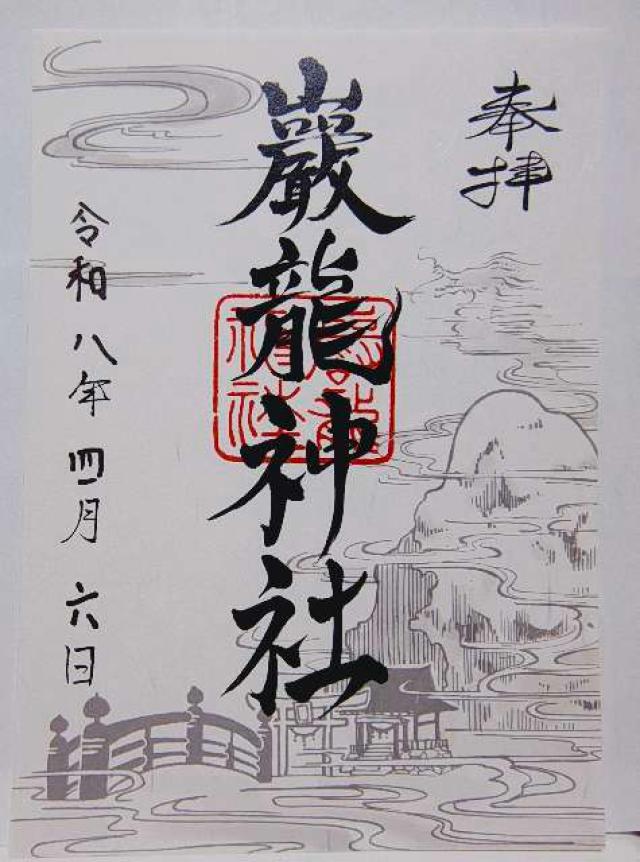 奉拝
巌龍神社
令和八年四月六日